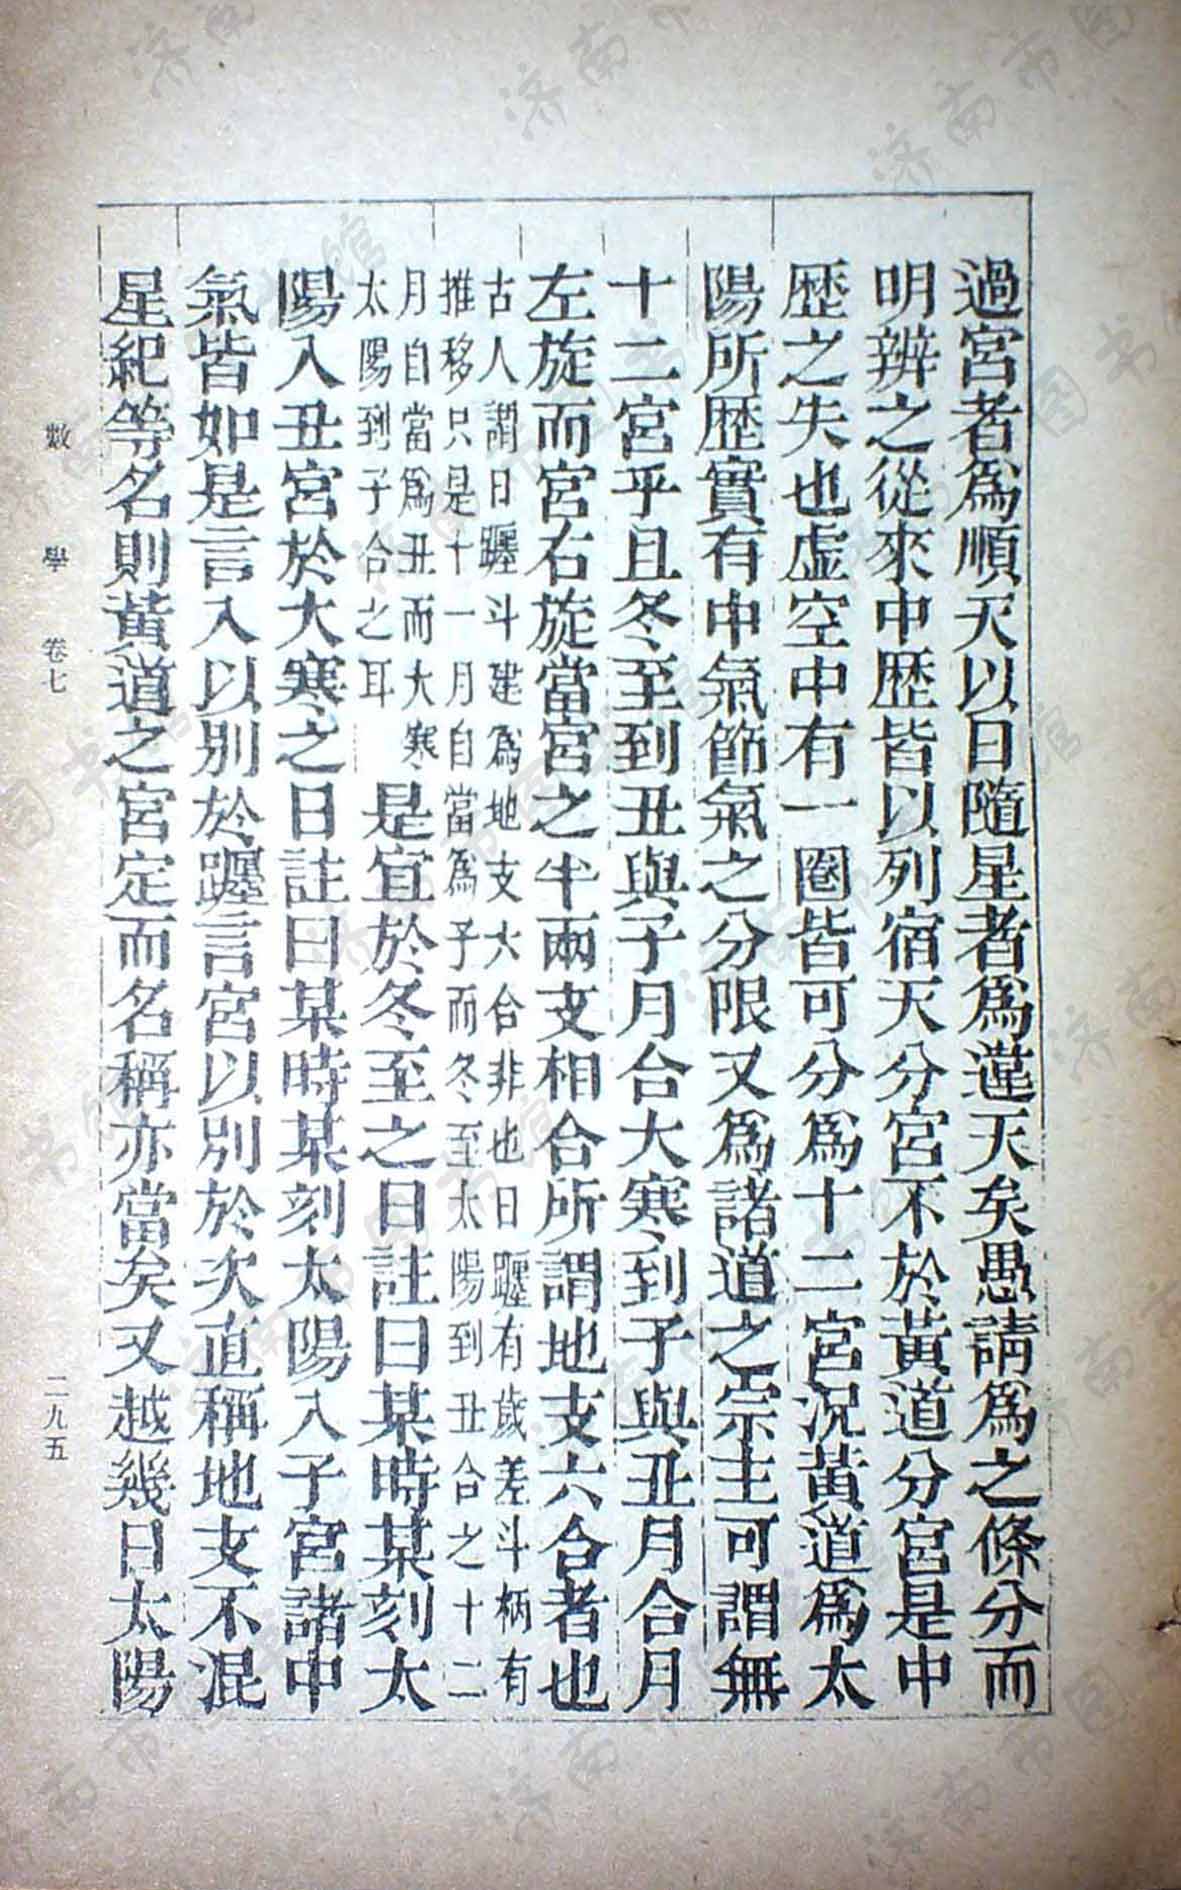 過宮者爲順天以日隨星者爲違天矣愚請爲之條分而
明辨之從來中歴皆以列宿天分宮不於黃道分宮是中
歴之失也虛空中有一圈皆可分爲十二宮況黃道爲太
陽所歴實有中氣節氣之分限又爲諸道之宗主可謂無
十二宮乎且冬至到丑與子月合大寒到子與丑月合月
左旋而宮右旋當宮之半兩支相合所謂地支六合者也
古人謂日躔斗建爲地支六合非也日躔有歲差斗柄有
推移只是十一月自當爲子而冬至太陽到丑合之十二
月自當爲丑而大寒
太陽到子合之耳
是宜於冬至之日註曰某時某刻太
陽入丑宮於大寒之日註曰某時某刻太陽入子宮諸中
氣皆如是言入以別於躔言宮以別於次直稱地支不混
星紀等名則黃道之宮定而名稱亦當矣又越幾日太陽
數學 卷七 二九五
济南市图书馆